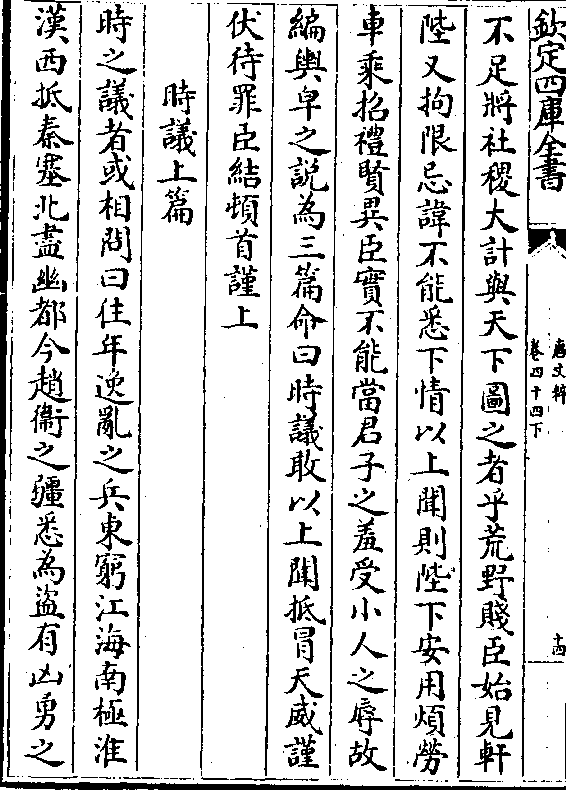 欽定四庫全書
唐文粹
卷四十四下
十四
不足將社稷大計與天下圖之者乎荒野賤臣始見軒
陛又拘限忌諱不能悉下情以上聞則陛下安用煩勞
車乘招禮賢異臣實不能當君子之羞受小人之辱故
編輿皁之説為三篇命曰時議敢以上聞抵冒天威謹
伏待罪臣結頓首謹上
時議上篇
時之議者或相問曰往年逆亂之兵東窮江海南極淮
漢西抵秦塞北盡幽都今趙衞之疆悉為盜有凶勇之